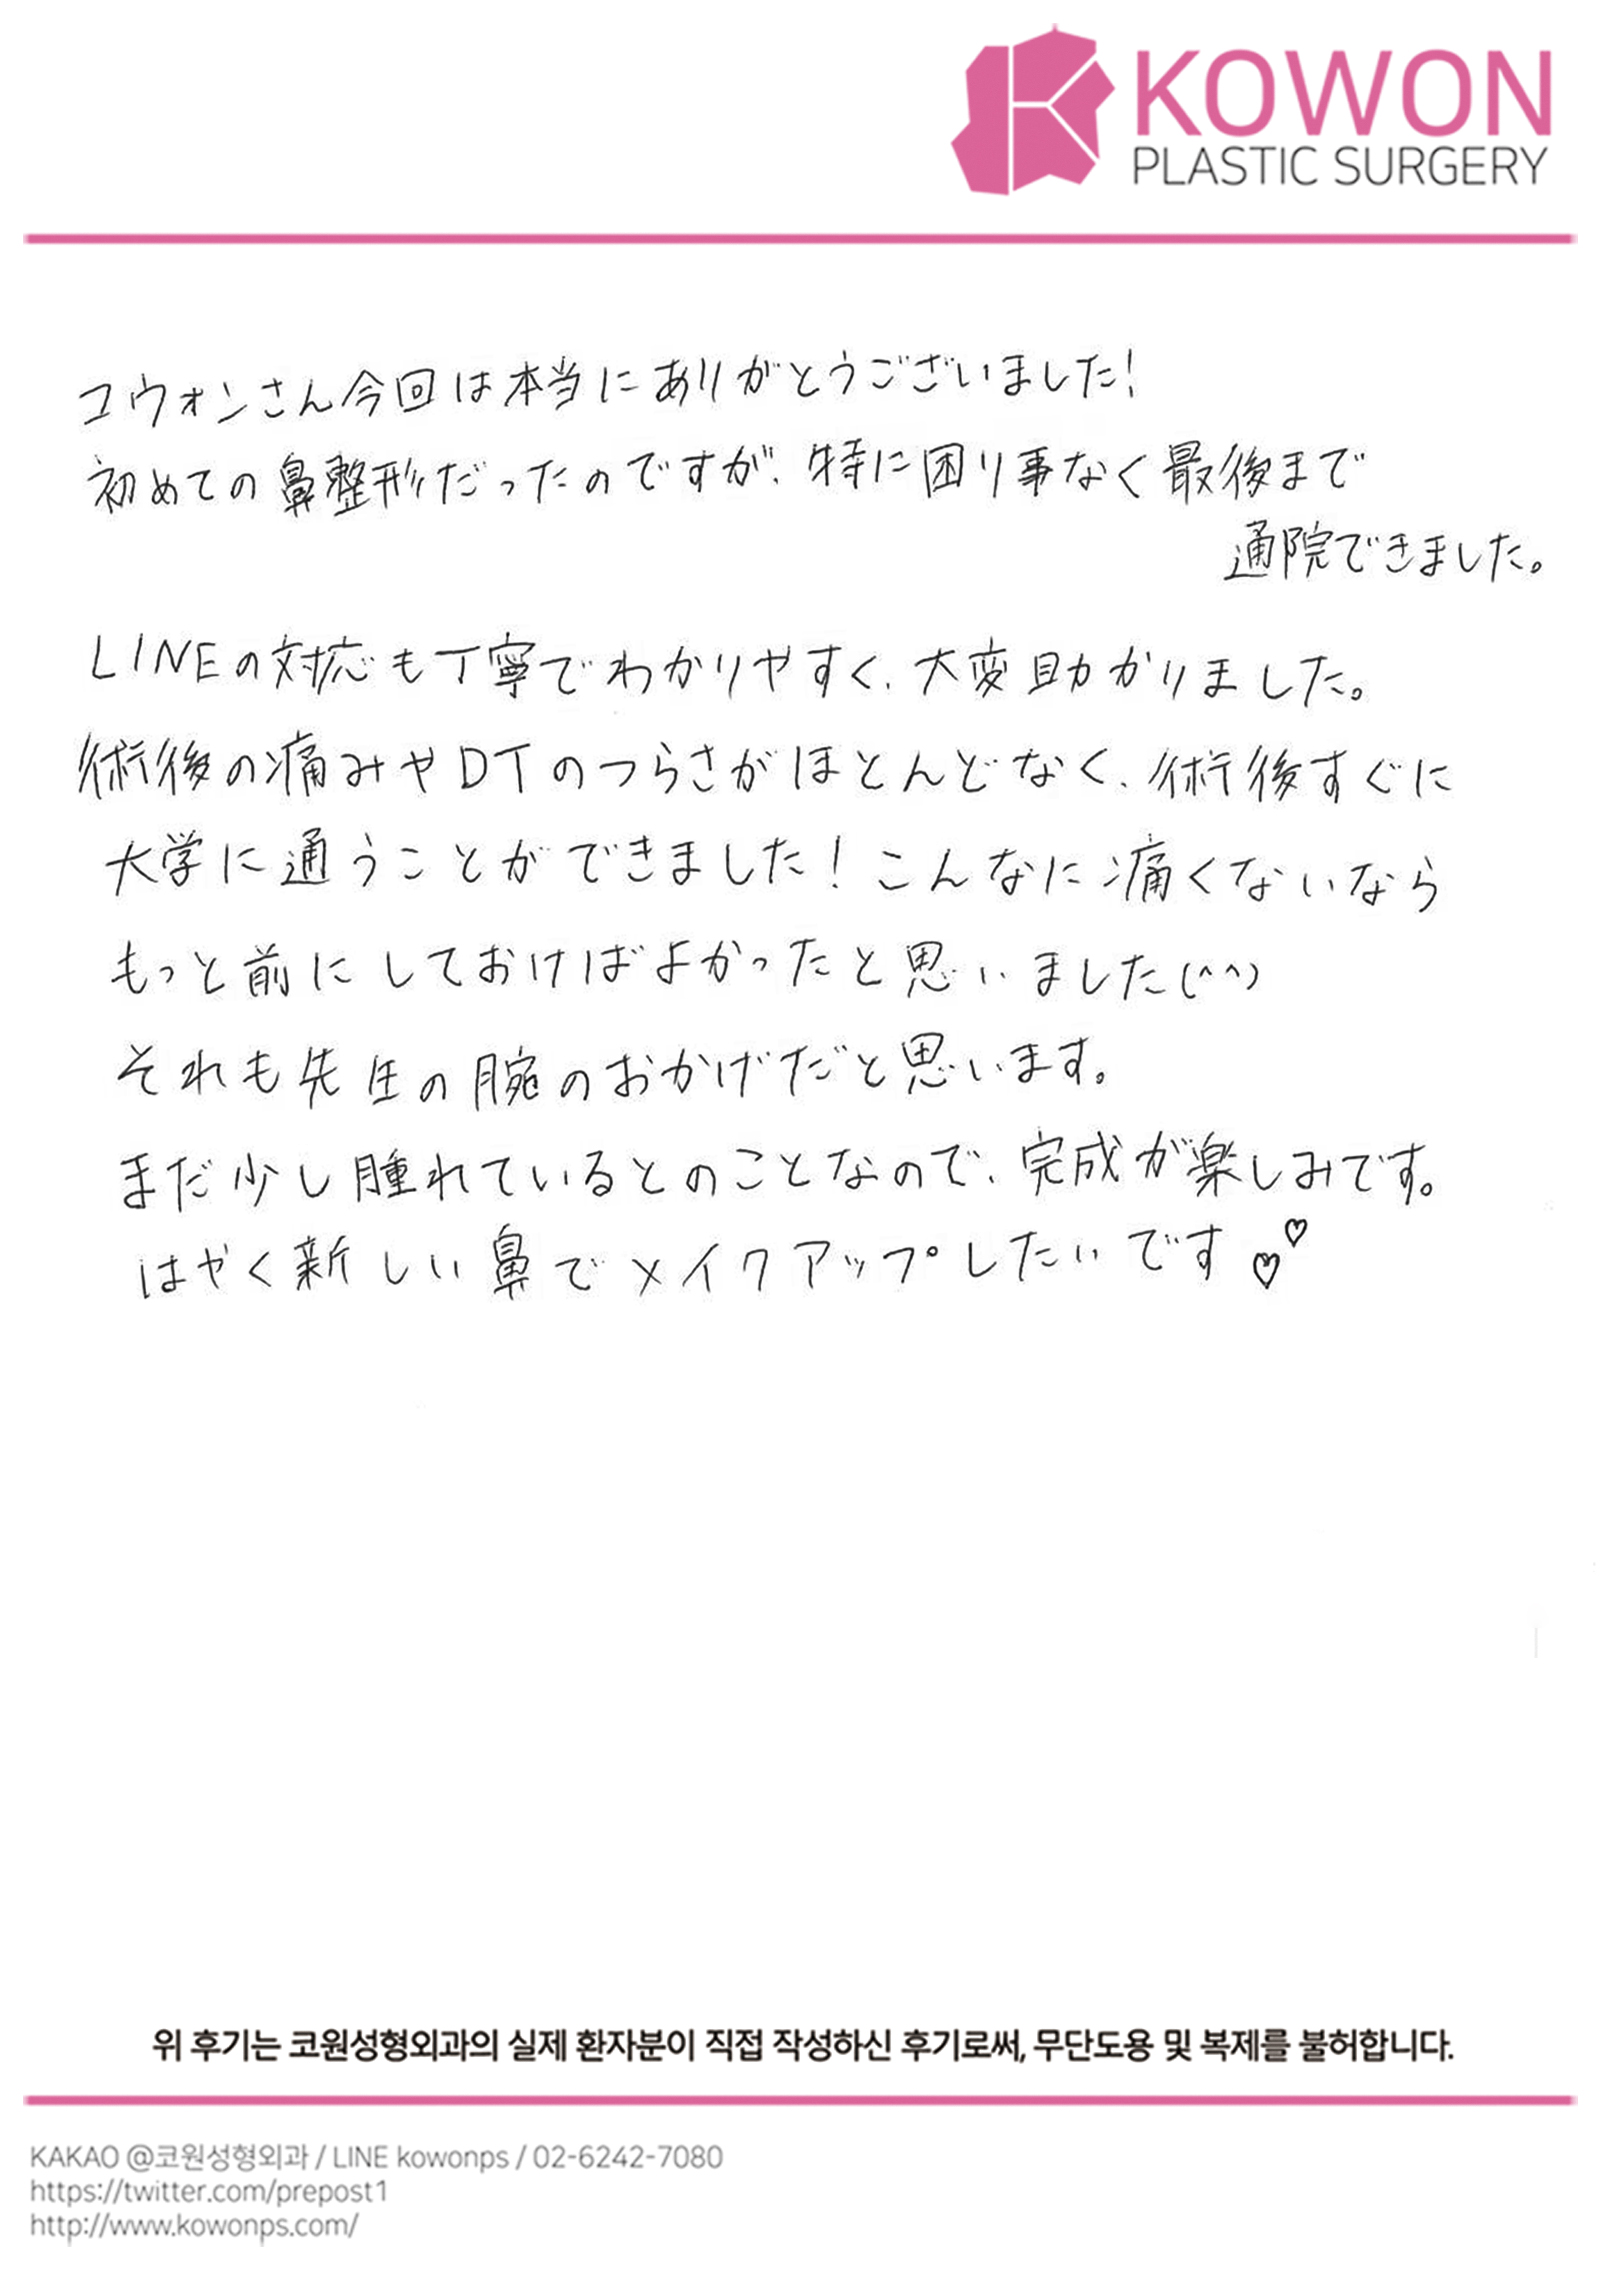 KOWON
PLASTIC SURGERY
コウォンさん今回は本当にありがとうございました!
初めての鼻整形だったのですが、特に困り事なく最後まで
通院できました。
LINEの対応も丁寧でわかりやすく、大変助かりました。
術後の痛みやDTのつらさがほとんどなく、術後すぐに
大学に通うことができました!こんなに痛くないなら
もっと前にしておけばよかったと思いました(^^)
それも先生の腕のおかげだと思います。
まだ少し腫れているとのことなので、完成が楽しみです。
はやく新しい鼻でメイクアップしたいです♡♡
위 후기는 코원성형외과의 실제 환자분이 직접 작성하신 후기로써, 무단도용 및 복제를 불허합니다.
KAKAO @코원성형외과 / LINE kowonps / 02-6242-7080
https://twitter.com/prepost1
http://www.kowonps.com/